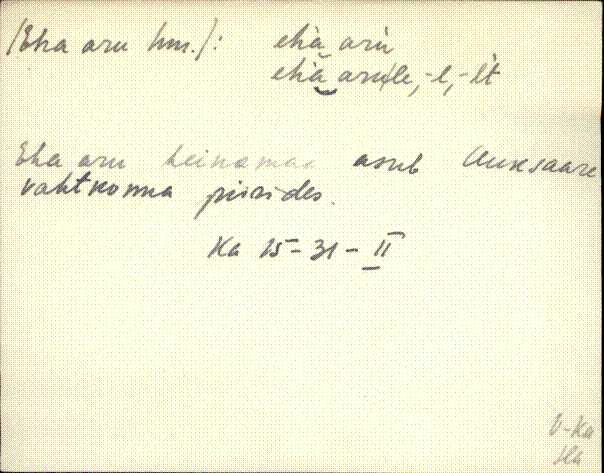 /Eha aru hm./: ehà arù
ehä arule, -l, -lt
Eha aru heinamaa asub Auksaare
vahtkonna piirides.
Ka 15-31-II
V-Ka